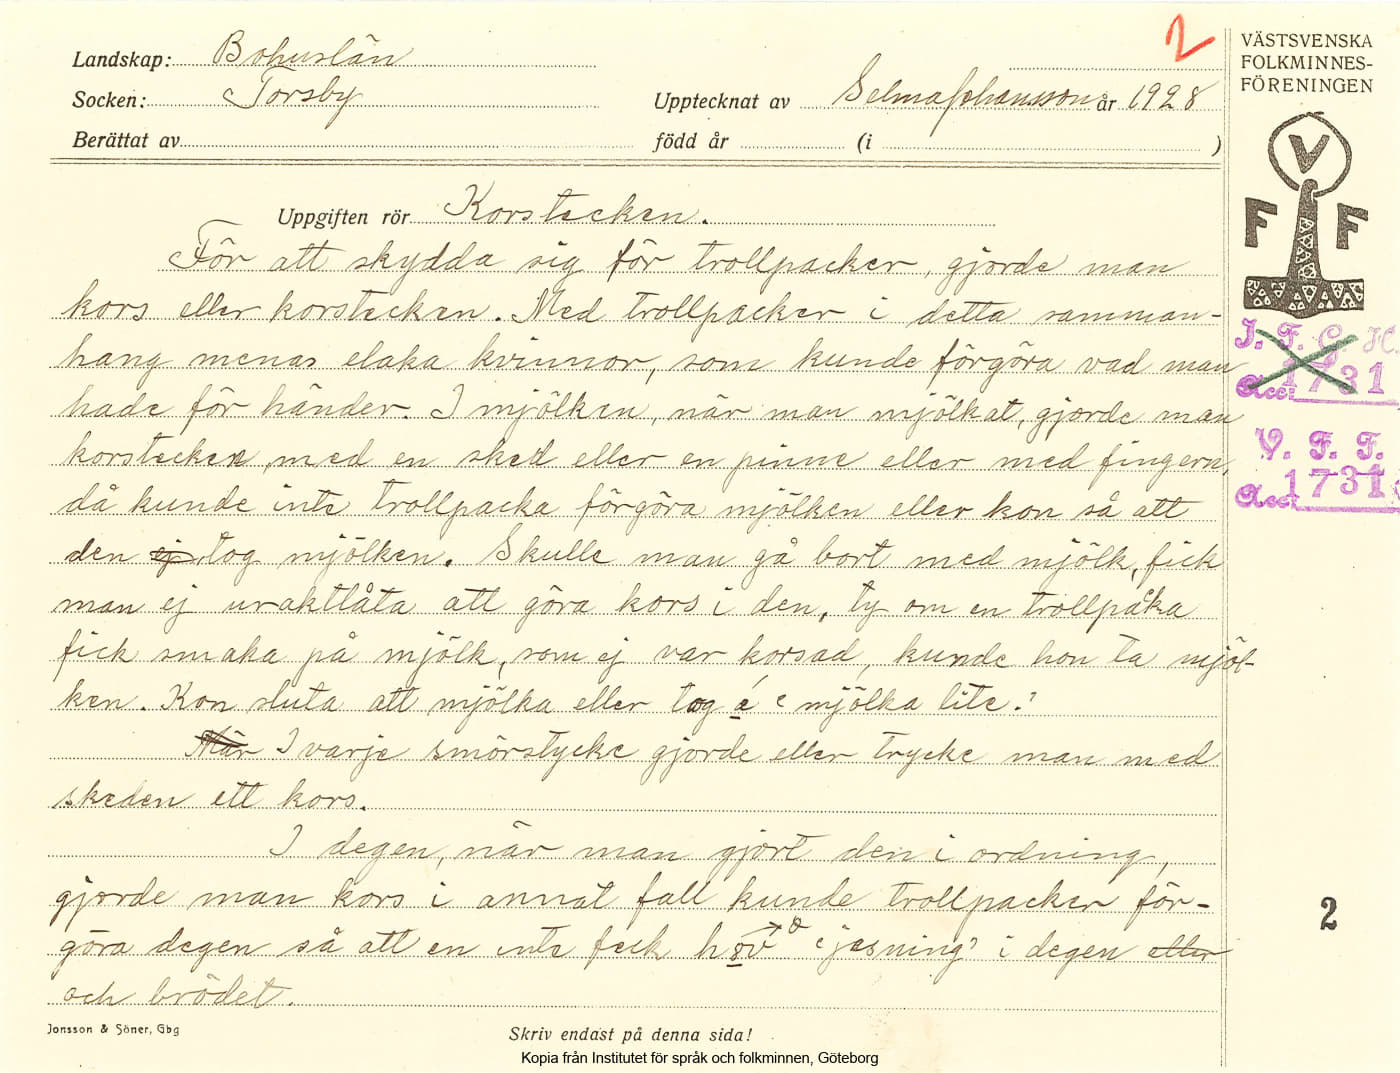 2
Landskap: Bohuslän
Socken: Torsby
Upptecknat av Selma Johansson år 1928
Berättat av
född år (i )
VÄSTSVENSKA
FOLKMINNES-
FÖRENINGEN
V
F F
J. F. G. H.
Acc. 1731
V. F. F.
Acc. 1731
Uppgiften rör Korstecken.
För att skydda sig för trollpacker, gjorde man
kors eller korstecken. Med trollpacker i detta samman-
hang menas elaka kvinnor, som kunde förgöra vad man
hade för händer. I mjölken, när man mjölkat, gjorde man
korstecken med en sked eller en pinne eller med fingern,
då kunde inte trollpacka förgöra mjölken eller kon så att
den ej tog mjölken. Skulle man gå bort med mjölk, fick
man ej uraktlåta att göra kors i den, ty om en trollpacka
fick smaka på mjölk, som ej var korsad, kunde hon ta mjöl-
ken. Kon sluta att mjölka eller tog é 'mjölka lite.'
När I varje smörstycke gjorde eller trycke man med
skeden ett kors.
I degen, när man gjort den i ordning,
gjorde man kors i annat fall kunde trollpacker för-
göra degen så att en inte feck 'jesning' i degen eller
och brödet.
2
Jonsson & Söner, Gbg
Skriv endast på denna sida!
Kopia från Institutet för språk och folkminnen, Göteborg